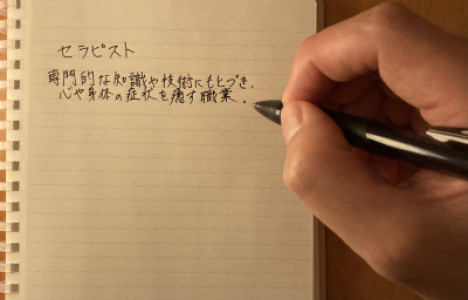 セラピスト
専門的な知識や技術にもとづき、
心や身体の症状を癒す職業.